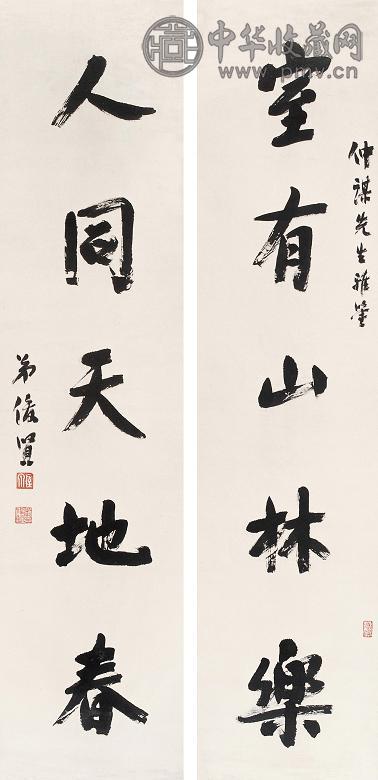 中华收藏网
www.pmv.cn
仲謀先生雅鑒
室有山林樂
人同天地春
弟俊賢